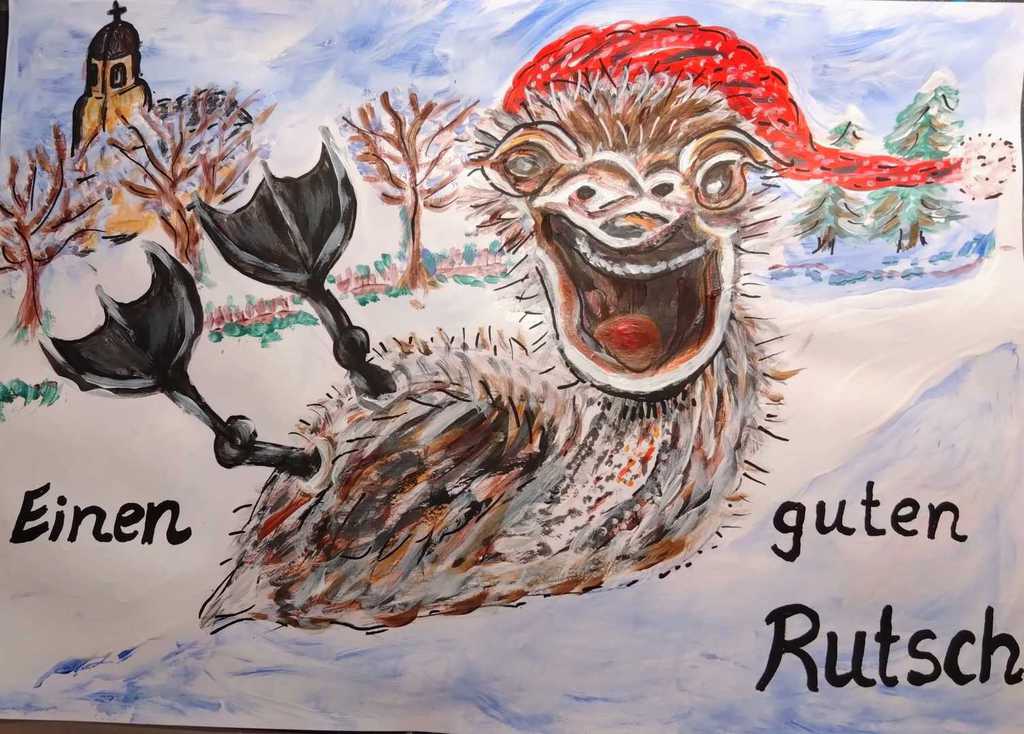 Einen guten
Rutsch